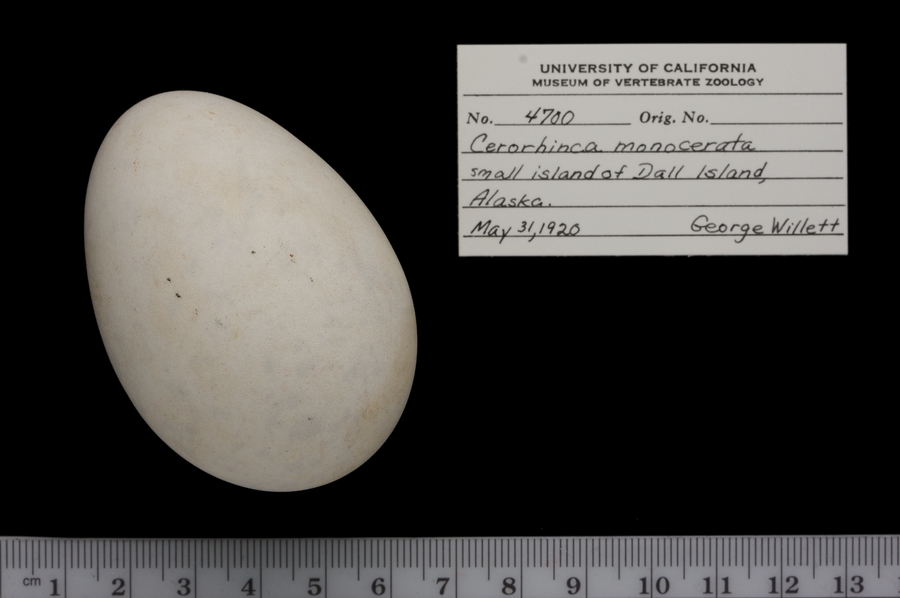 UNIVERSITY OF CALIFORNIA
MUSEUM OF VERTEBRATE ZOOLOGY
No. 4700 Orig. No.
Cerorhinca monocerata
small island of Dall Island,
Alaska.
May 31, 1920 George Willett
cm 1 2 3 4 5 6 7 8 9 10 11 12 13